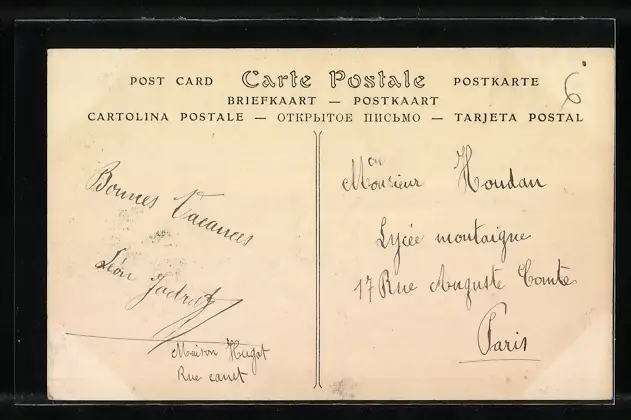 POST CARD Carte Postale POSTKARTE
BRIEFKAART — POSTKAART
CARTOLINA POSTALE — ОТКРЫТОЕ ПИСЬМО — TARJETA POSTAL
6
Bonnes Vacances
Léon
Maison Hugot
Rue canet
on
Monsieur Houdan
Lycée montaigne
17 Rue Auguste Comte
Paris